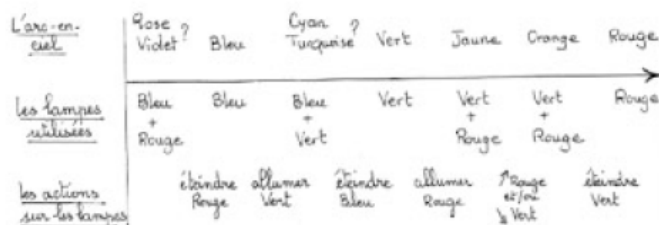 L'arc-en-ciel
Rose Violet ? Bleu Cyan Turquoise ? Vert Jaune Orange Rouge
les lampes utilisées
Bleu + Rouge Bleu Bleu + Vert Vert Vert + Rouge Vert + Rouge Rouge
les actions sur les lampes
éteindre Rouge allumer Vert éteindre Bleu allumer Rouge ↗ Rouge et/ou ↘ Vert éteindre Vert